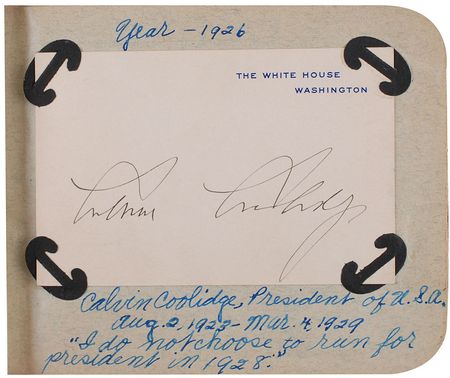 Year - 1926
THE WHITE HOUSE
WASHINGTON
Calvin Coolidge
Calvin Coolidge, President of U.S.A.
Aug. 2, 1923 - Mar. 4, 1929
"I do not choose to run for
president in 1928."